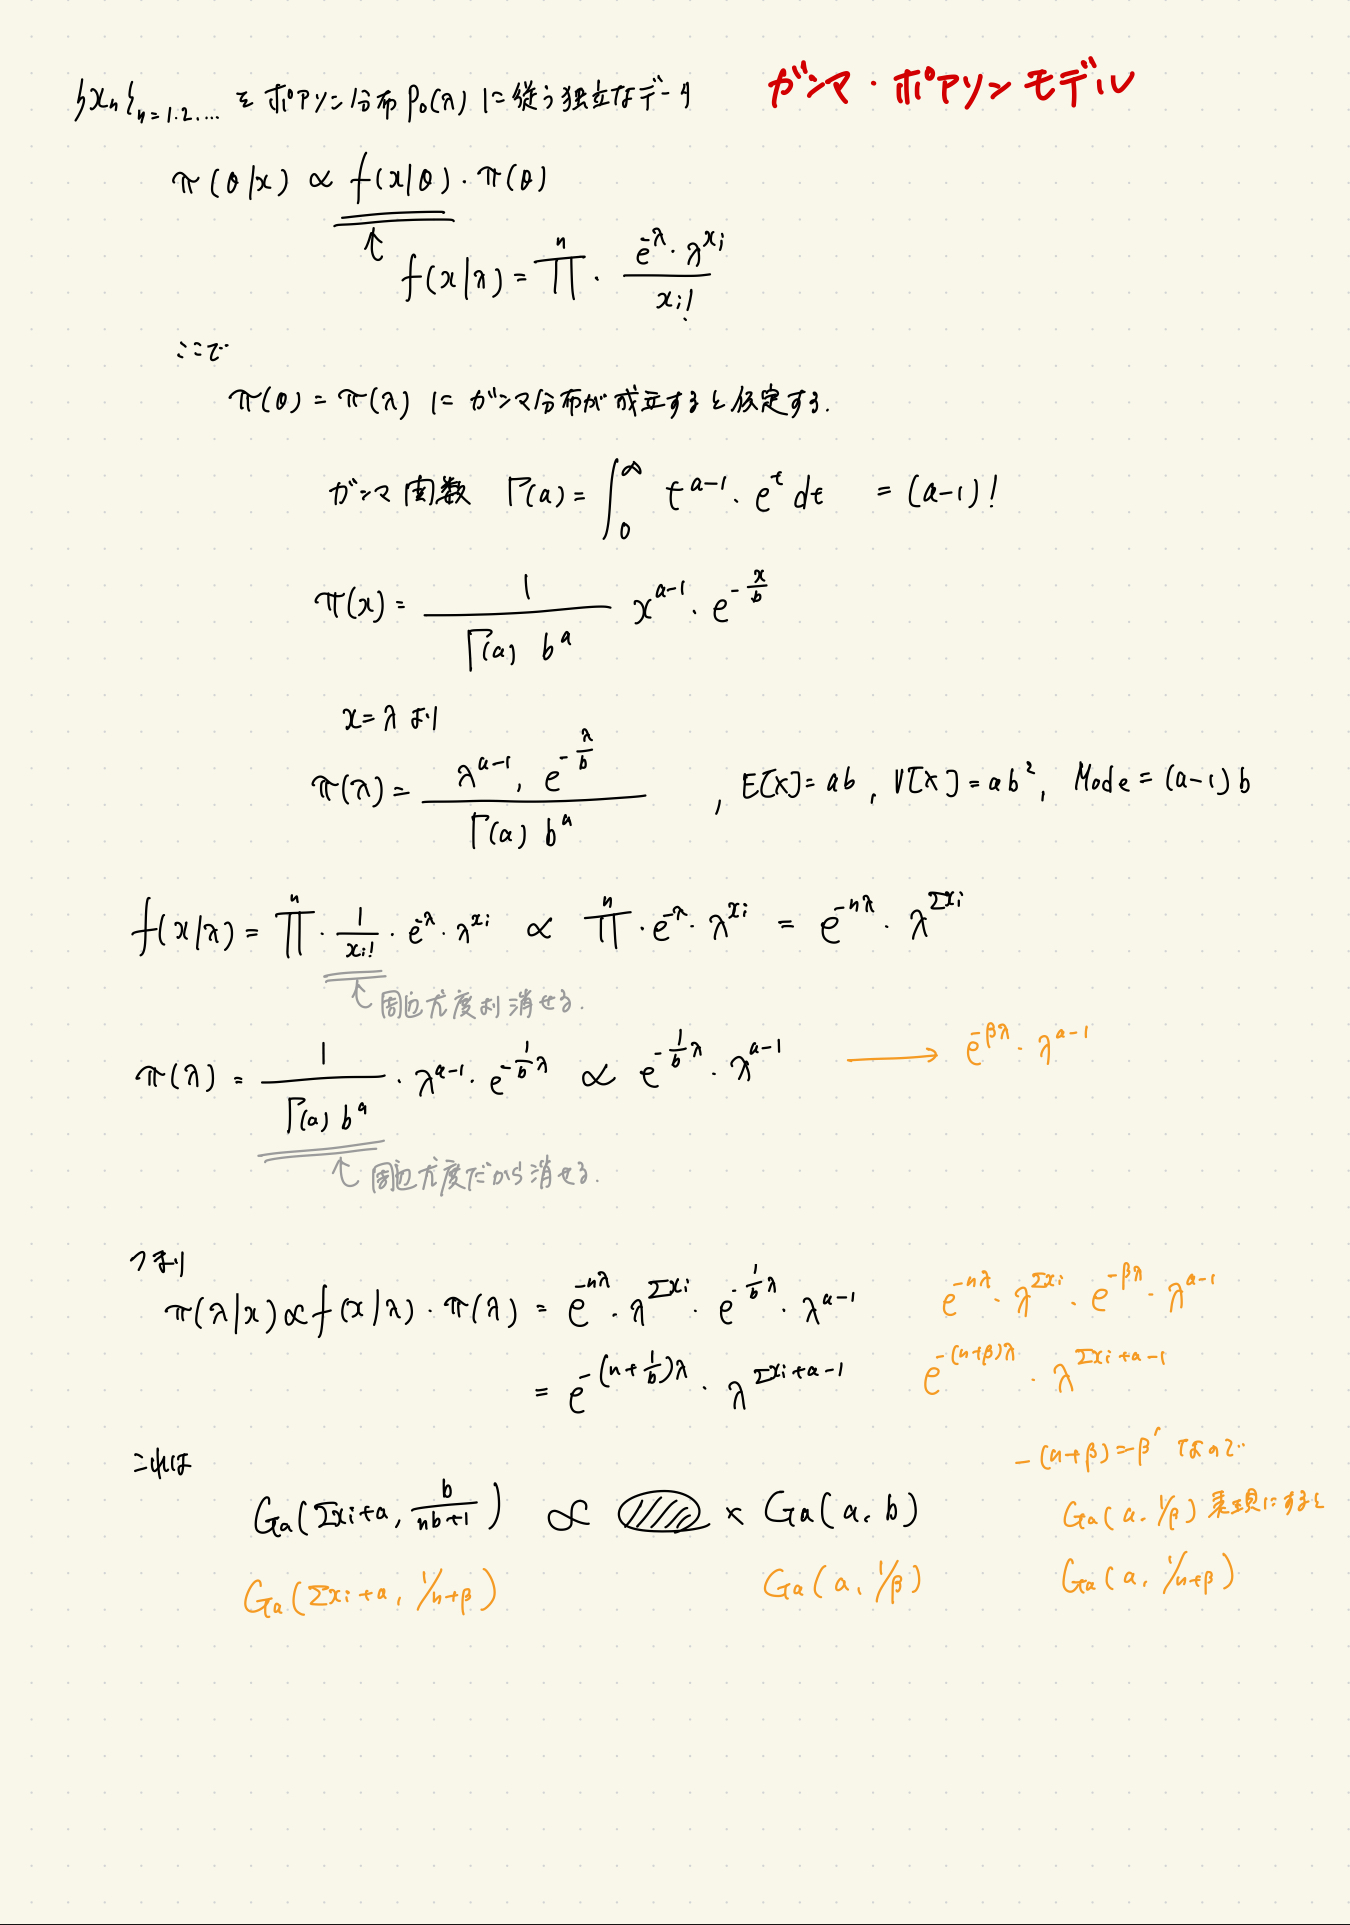 ガンマ・ポアソンモデル
{xn}n=1.2.... をポアソン分布 Po(λ) に従う独立なデータ
π(θ|x) ∝ f(x|θ)・π(θ)
f(x|λ) = Π^n ・ e^-λ・λ^xi / xi!
ここで
π(θ) = π(λ) に ガンマ分布が成立すると仮定する.
ガンマ関数 Γ(a) = ∫_0^∞ t^a-1・e^t dt = (a-1)!
π(x) = 1 / Γ(a) b^a x^a-1・e^-x/b
x = λ より
π(λ) = λ^a-1・e^-λ/b / Γ(a) b^a , E[X] = ab , V[X] = ab^2, Mode = (a-1)b
f(x|λ) = Π^n ・ 1/xi! ・ e^-λ・λ^xi ∝ Π^n ・e^-λ・λ^xi = e^-nλ ・ λ^Σxi
周辺尤度より消せる.
π(λ) = 1 / Γ(a) b^a ・ λ^a-1・e^-1/b λ ∝ e^-1/b λ ・ λ^a-1 → e^-βλ・λ^a-1
周辺尤度だから消せる.
つまり
π(λ|x) ∝ f(x|λ)・π(λ) = e^-nλ・λ^Σxi・e^-1/b λ・λ^a-1 e^-nλ・λ^Σxi・e^-βλ・λ^a-1
= e^-(n+1/b)λ ・ λ^Σxi+a-1 e^-(n+β)λ ・ λ^Σxi+a-1
これは
-(n+β)=-β' なので
Ga(Σxi+a, b/nb+1) ∝ × Ga(a, b) Ga(a, 1/β) 乗項にすると
Ga(Σxi+a, 1/n+β) Ga(a, 1/β) Ga(a, 1/n+β)